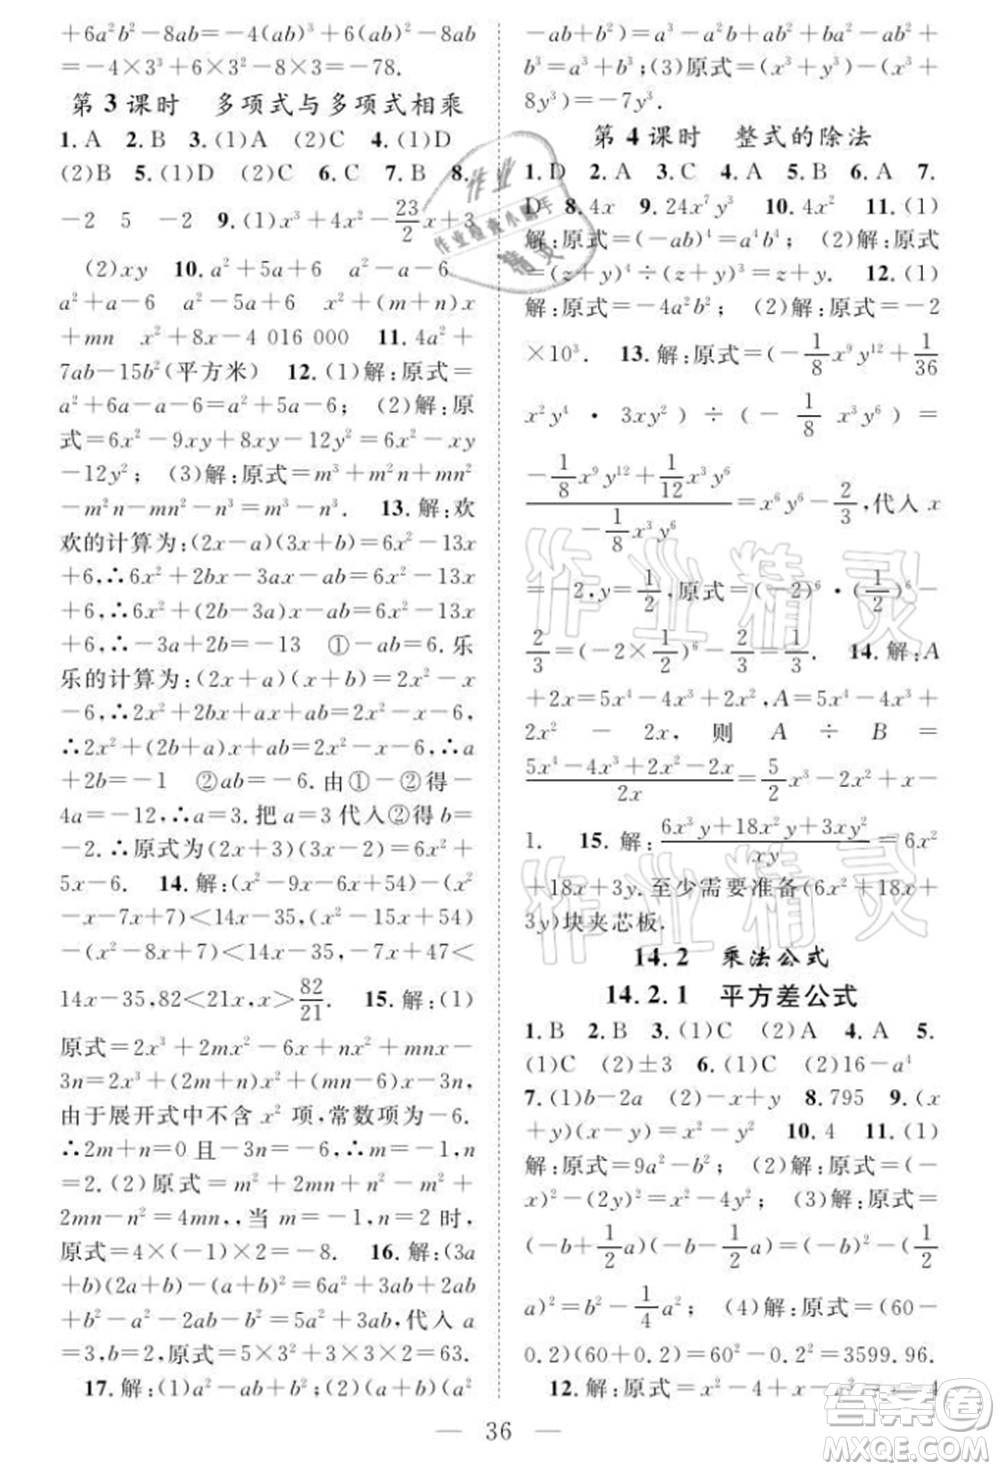 +6a²b²－8ab=－4(ab)³+6(ab)²－8ab
=－4×3³+6×3²－8×3=－78.
第3课时 多项式与多项式相乘
1. A 2. B 3. (1)A (2)C 4. (1)D
(2)B 5. (1)D (2)C 6. B 7. B 8.
－2 5 －2 9. (1)x³+4x²－23/2x+3
(2)xy 10. a²+5a+6 a²－a－6
a²+a－6 a²－5a+6 x²+(m+n)x
+mn x²+8x－4 016 000 11. 4a²+
7ab－15b²(平方米) 12. (1)解:原式=
a²+6a－a－6=a²+5a－6; (2)解:原
式=6x²－9xy+8xy－12y²=6x²－xy
－12y²; (3)解:原式=m³+m²n+mn²
－m²n－mn²－n³=m³－n³. 13. 解:欢
欢的计算为:(2x－a)(3x+b)=6x²－13x
+6,∴6x²+(2b－3a)x－ab=6x²－13x
+6,∴2b－3a=－13 ①－ab=6. 乐
乐的计算为:(2x+a)(x+b)=2x²－x－6,
∴2x²+(2b+a)x+ab=2x²－x－6,∴a
+2b=－1 ②ab=－6. 由①－②得－
4a=－12,∴a=3. 把a=3代入②得b=
－2. ∴原式为(2x+3)(3x－2)=6x²+
5x－6. 14. 解:(x²－9x－6x+54)－(x²
－x－7x+7)<14x－35,(x²－15x+54)
－(x²－8x+7)<14x－35,－7x+47<
14x－35,82<21x,x>82/21. 15. 解:(1)
原式=2x³+2mx²－6x+nx²+mnx－
3n=2x³+(2m+n)x²+(mn－6)x－3n
由于展开式中不含x²项,常数项为－6.
∴2m+n=0且－3n=－6. ∴m=－1,n
=2. (2)原式=m²+2mn+n²－m²+
2mn－n²=4mn,,当m=－1,n=2时,
原式=4×(－1)×2=－8. 16. 解:(3a
+b)(2a+b)－(a+b)²=6a²+3ab+2ab
+b²－a²－2ab－b²=5a²+3ab,代入a
=3,b=2,原式=5×3×3+3×3×2=63.
17. 解:(1)a²－ab+b²;(2)(a+b)(a²
－ab+b²)=a³－a²b+ab²+a²b－ab²+
b³=a³+b³;(3)原式=(x³+y³)－(x³+
8y³)=－7y³.
第4课时 整式的除法
1. D 2. A 3. C 4. C 5. A 6. A 7.
D 8. 4x 9. 24x⁷y³ 10. 4x² 11. (1)
解:原式=(－ab)⁴=a⁴b⁴; (2)解:原式
=(z+y)⁴÷(z+y)³=z+y. 12. (1)
解:原式=－4a²b²; (2)解:原式=－2
×10³. 13. 解:原式=(－1/8x⁹y¹²+1/36
x²y⁴·3xy²)÷(－1/8x³y⁶)=
(－1/8x⁹y¹²+1/12x³y⁶)/(－1/8x³y⁶)=x⁶y⁶－2/3,代入x
=－2,y=1/2,原式=(－2)⁶·(1/2)⁶－
2/3=(－2×1/2)⁶－2/3=1/3. 14. 解:A
+2x=5x⁴－4x³+2x²,A=5x⁴－4x³+
2x²－2x,则A÷B=
(5x⁴－4x³+2x²－2x)/2x=5/2x³－2x²+x－
1. 15. 解:(6x³y+18x²y+3xy²)/xy=6x²
+18x+3y. 至少需要准备(6x²+18x+
3y)块夹芯板.
14.2 乘法公式
14.2.1 平方差公式
1. B 2. B 3. (1)C (2)A 4. A 5.
(1)C (2)±3 6. (1)C (2)16－a⁴
7. (1)b－2a (2)－x+y 8. 795 9. (x
+y)(x－y)=x²－y² 10. 4 11. (1)
解:原式=9a²－b²; (2)解:原式=(－
x)²－(2y)²=x²－4y²; (3)解:原式=
(－b+1/2a)(－b－1/2a)=(－b)²－(1/2
a)²=b²－1/4a²; (4)解:原式=(60－
0.2)(60+0.2)=60²－0.2²=3599.96.
12. 解:原式=x²－4+4x－x²=4x－4
36